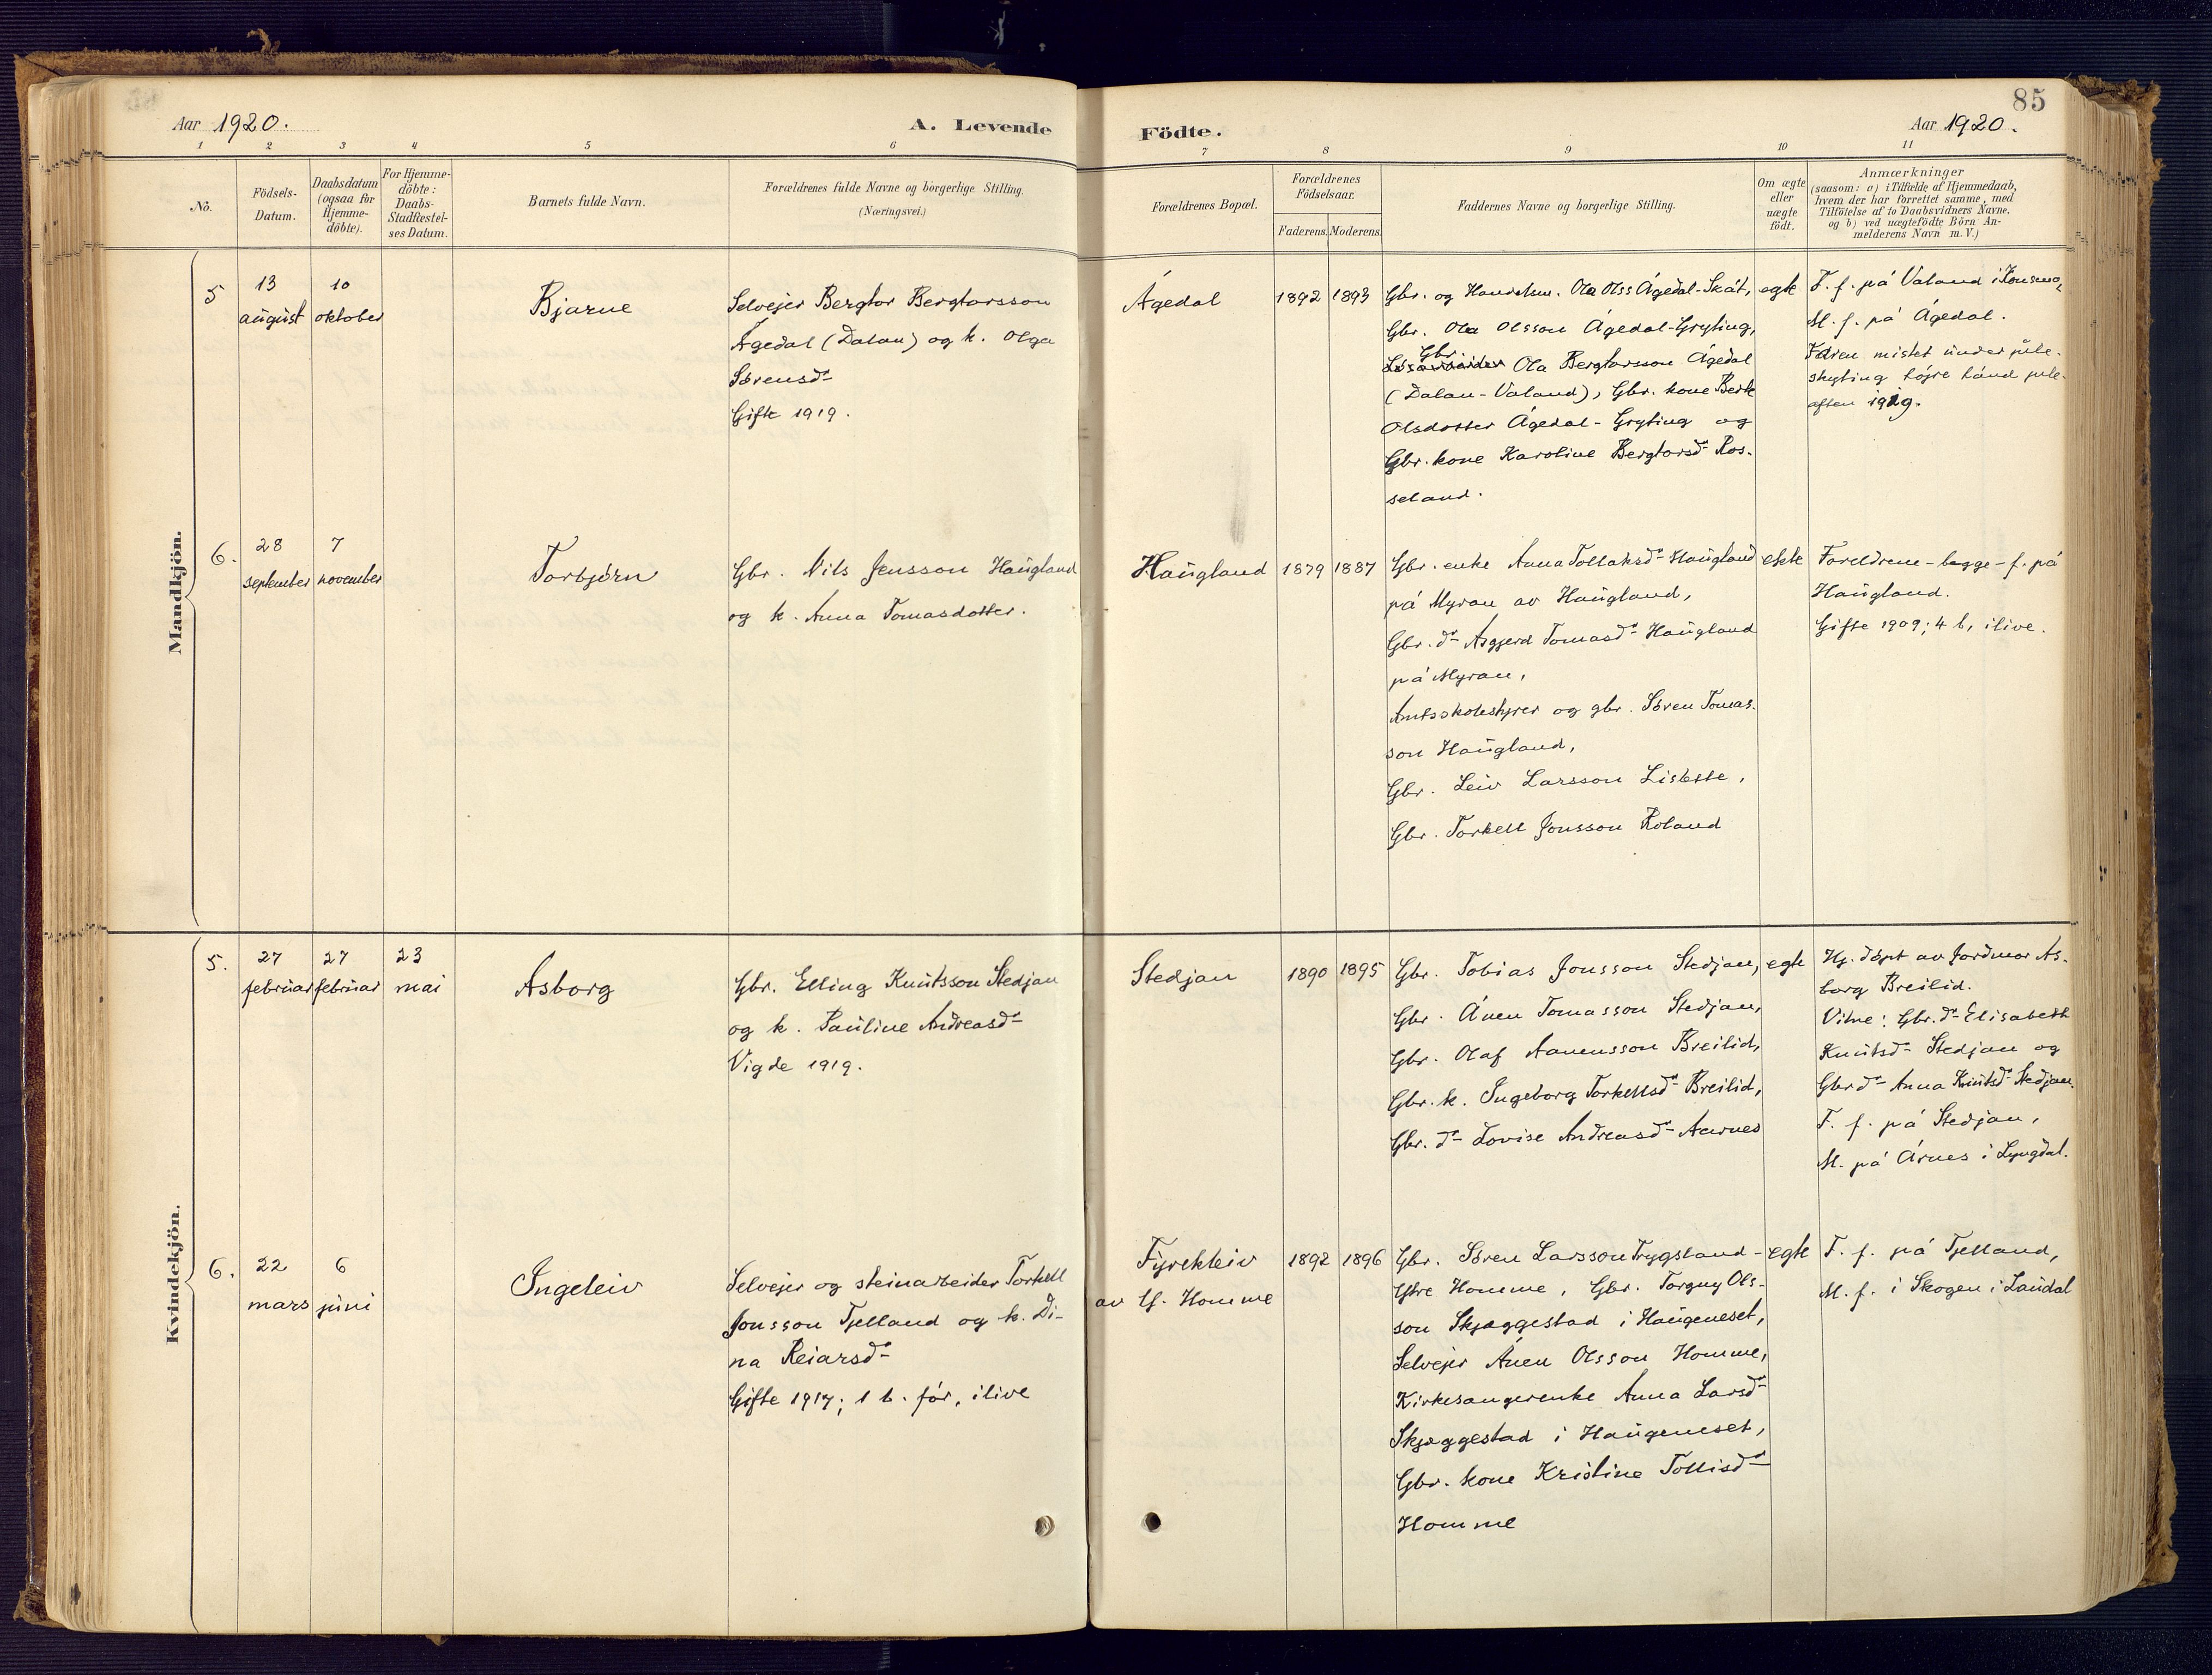 85
Aar 1920.
A. Levende
Födte.
Aar 1920.
1 2 3 4 5 6 7 8 9 10 11
No.
Födsels-
Datum.
Daabsdatum
(ogsaa for
Hjemme-
döbte).
For Hjemme-
döbte:
Daabs-
Stadfæstel-
ses Datum.
Barnets fulde Navn.
Forældrenes fulde Navne og borgerlige Stilling.
(Næringsvei.)
Forældrenes Bopæl.
Forældrenes
Födselsaar.
Faderens. Moderens.
Faddernes Navne og borgerlige Stilling.
Om ægte
eller
uægte
födt.
Anmærkninger
(saasom: a) i Tilfælde af Hjemmedaab,
hvem der har forrettet samme, med
Tilföielse af to Daabsvidners Navne,
og b) ved uægtefödte Börn An-
melderens Navn m. V.)
Mandkjön.
5
13
august
10
oktober
Bjarne
Selvejer Bergtor Bergtorsson
Ágedal (Dalan) og k. Olga
Sørensd-
Gifte 1919.
Ágedal
1892
1893
Gbr. og Handelsm. Ola Olss Ágedal-Skát,
Gbr. Ola Olsson Ágedal-Gryting,
Gbr.
Ola Bergtorsson Ágedal
(Dalan-Valand), Gbr. kone Berte
Olsdotter Ágedal-Gryting og
Gbr. kone Karoline Bergtorsd- Ros-
seland.
egte
F. f. på Valand i Konsmo,
M. f. på Ágedal.
Faren mistet under jule-
skyting højre hånd jule-
aften 1919.
6.
28
september
7
november
Torbjørn
Gbr. Nils Jensson Haugland
og k. Anna Tomasdotter.
Haugland
1879
1887
Gbr. enke Anna Tollaksd- Haugland
på Myran av Haugland,
Gbr. d- Asgjerd Tomasd- Haugland
på Myran,
Amtsskolestyrer og gbr. Søren Tomas-
son Haugland,
Gbr. Leiv Larsson
Gbr. Torkell Jonsson Roland
ekte
Foreldrene - begge - f. på
Haugland.
Gifte 1909; 4 b, ilive.
Kvindekjön.
5.
27
februar
27
februar
23
mai
Asborg
Gbr. Elling Knutsson Stedjan
og k. Pauline Andreasd-
Vigde 1919.
Stedjan
1890
1895
Gbr. Tobias Jonsson Stedjan,
Gbr. Ánen Tomasson Stedjan,
Gbr. Olaf Aanensson Breilid,
Gbr. k. Ingeborg Torkellsd- Breilid,
Gbr. d- Lovise Andreasd- Aarnes
egte
Hj. døpt av Jordmor As-
borg Breilid.
Vitne: Gbr. d- Elisabeth
Knutsd- Stedjan og
Gbr d- Anna Knutsd- Stedjan.
F. f. på Stedjan,
M. på Árnes i Lyngdal.
6.
22
mars
6
juni
Ingeleiv
Selvejer og steinarbeider Torkell
Jonsson Tjelland og k. Di-
na Reiarsd-
Gifte 1917; 1 b. før, ilive
Fyrekleiv
av Y. Homme
1892
1896
Gbr. Søren Larsson Trygsland-
Ytre Homme, Gbr. Torguy Ols-
son Skjæggestad i Haugeneset,
Selvejer Ánen Olsson Homme,
Kirkesangerenke Anna Larsd-
Skjæggestad i Haugeneset,
Gbr. kone Kristine Tollisd-
Homme
egte
F. f. på Tjelland,
M. f. i Skogen i Laudal